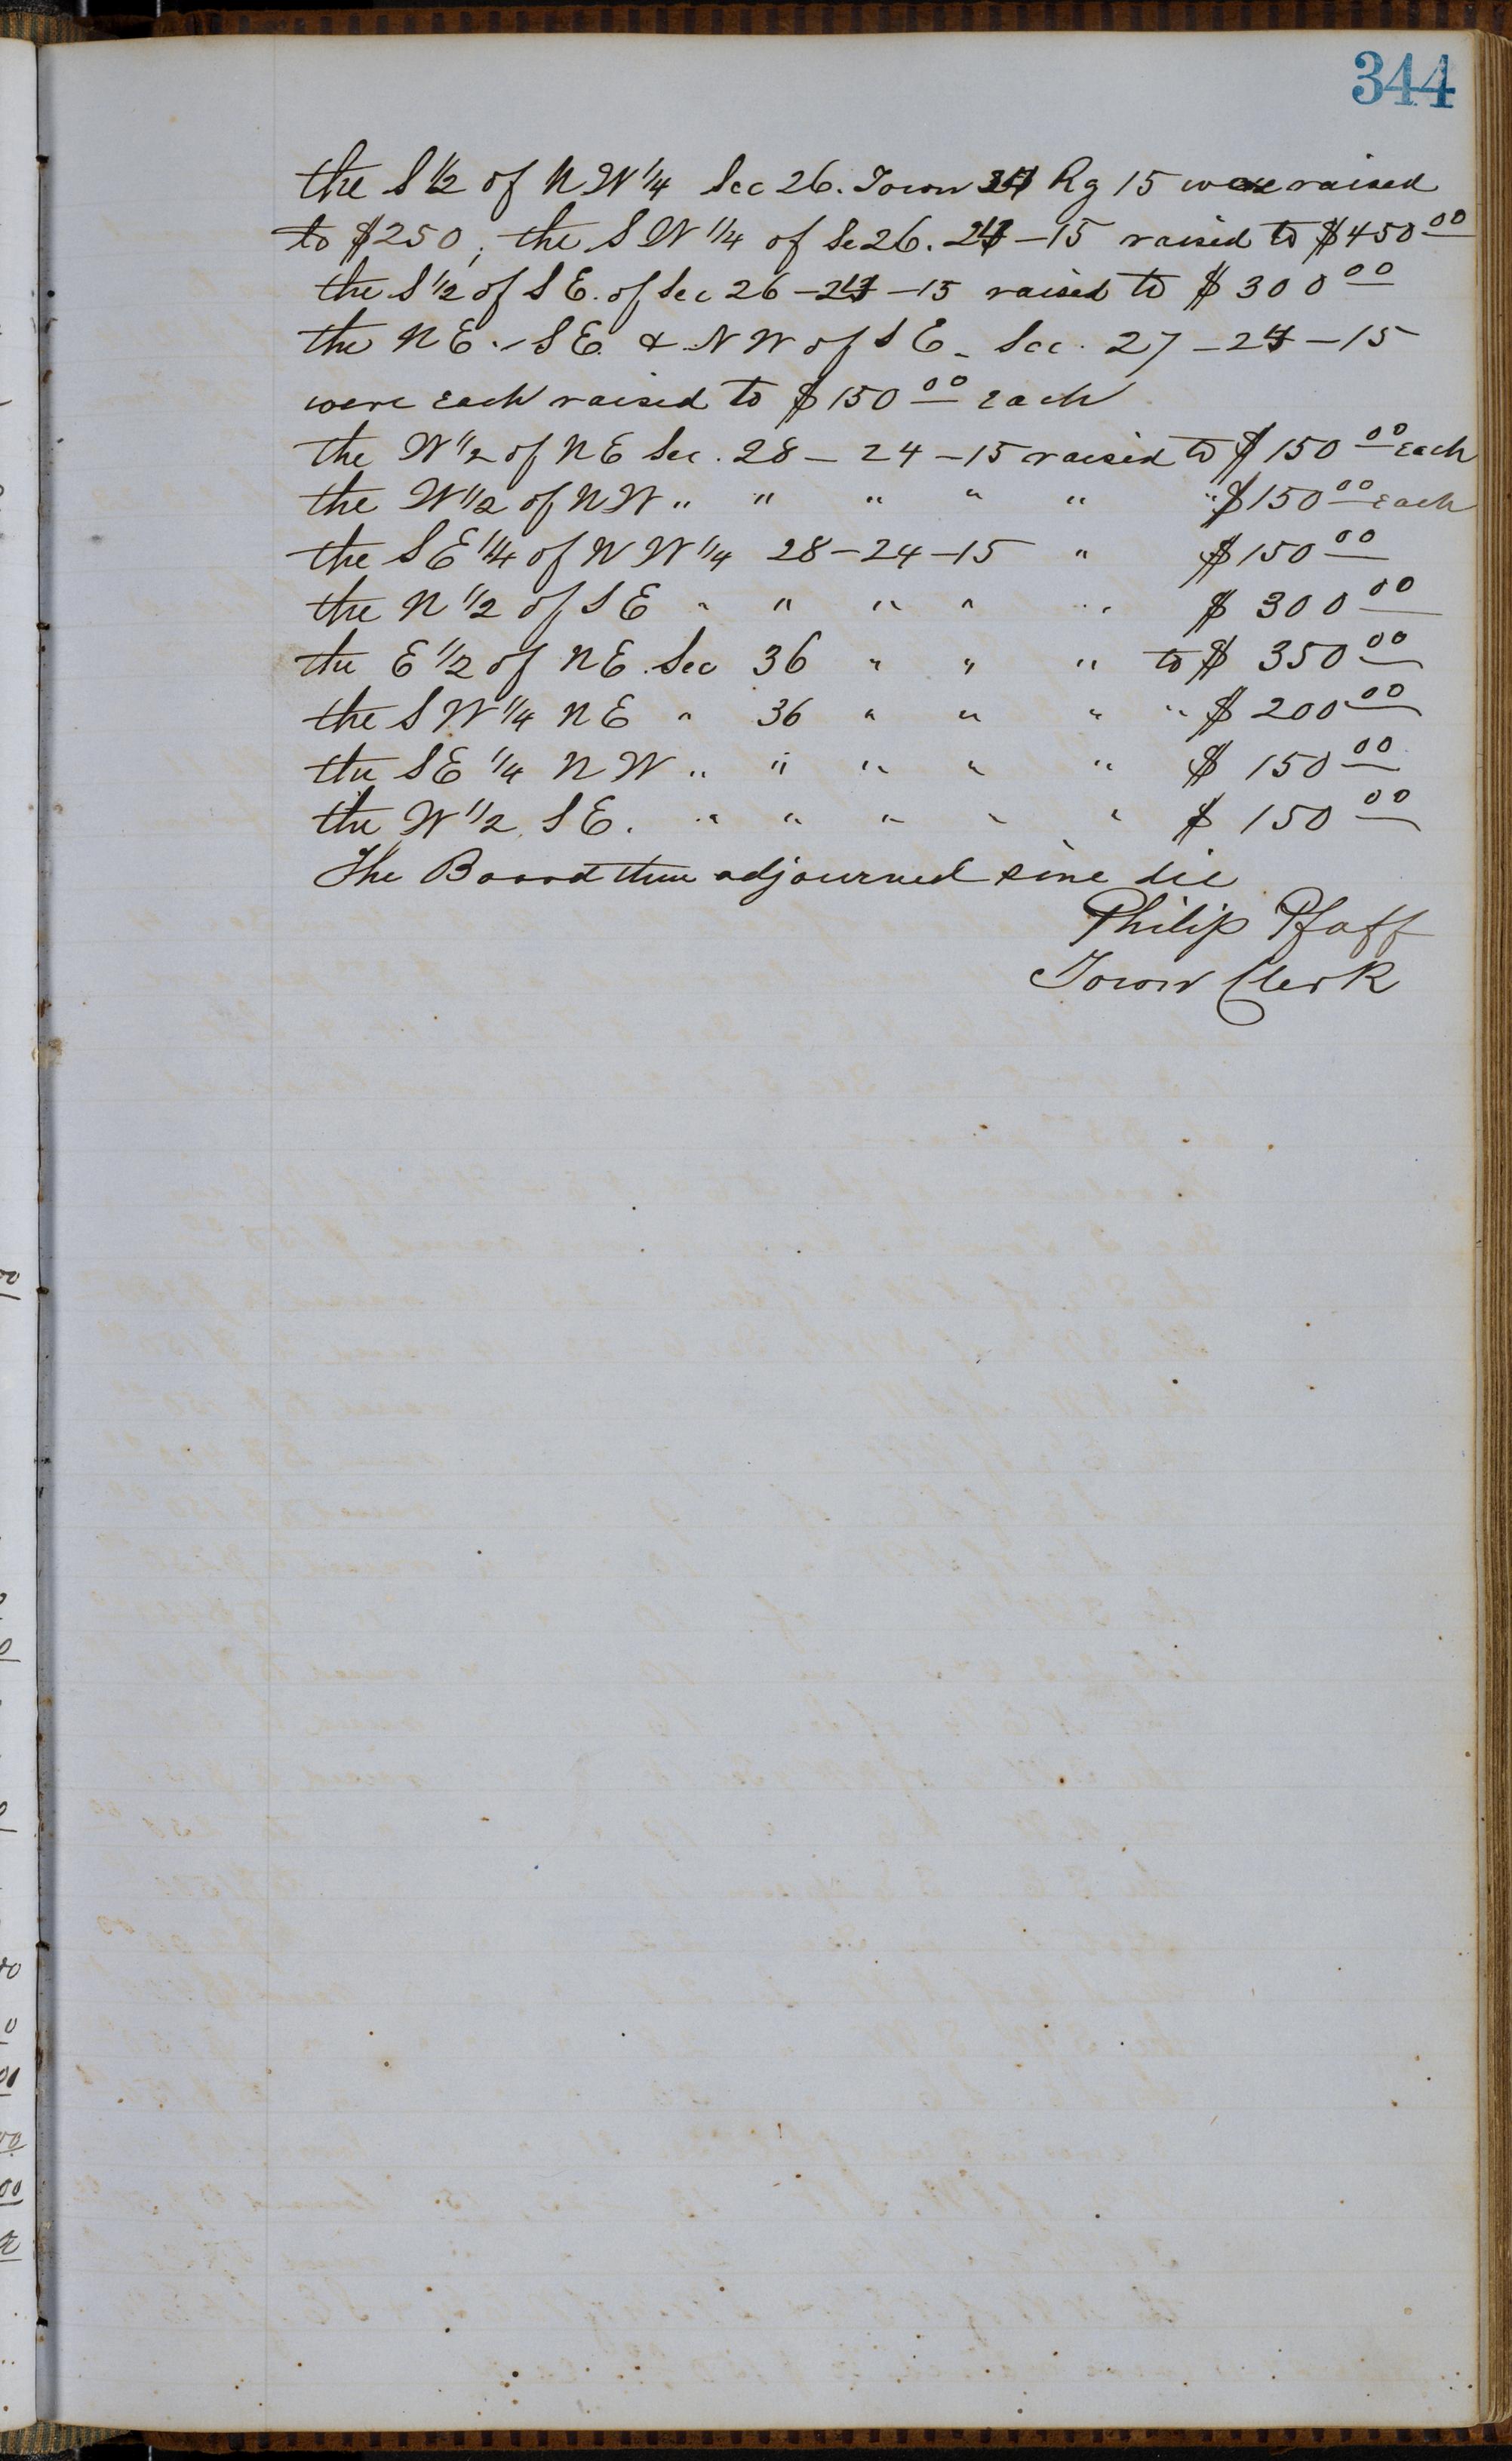 344
the S 1/2 of N W 1/4 Sec 26. Town 24 Rg 15 were raised
to $250, the S W 1/4 of Se 26. 24 - 15 raised to $450 00
the S 1/2 of S E. of Sec 26 - 24 - 15 raised to $ 300 00
the N E. - S E. & N W of S E - Sec. 27 - 24 - 15
were each raised to $ 150 00 each
the W 1/2 of N E Sec. 28 - 24 - 15 raised to $ 150 00 each
the W 1/2 of N W " " " " " " $ 150 00 each
the S E 1/4 of N W 1/4 28 - 24 - 15 " $ 150 00
the N 1/2 of S E " " " " " $ 300 00
the E 1/2 of N E. Sec 36 " " " to $ 350 00
the S W 1/4 N E " 36 " " " " $ 200 00
the S E 1/4 N W " " " " " $ 150 00
the W 1/2 S E. " " " " " $ 150 00
The Board then adjourned sine die
Philip Pfaff
Town Clerk